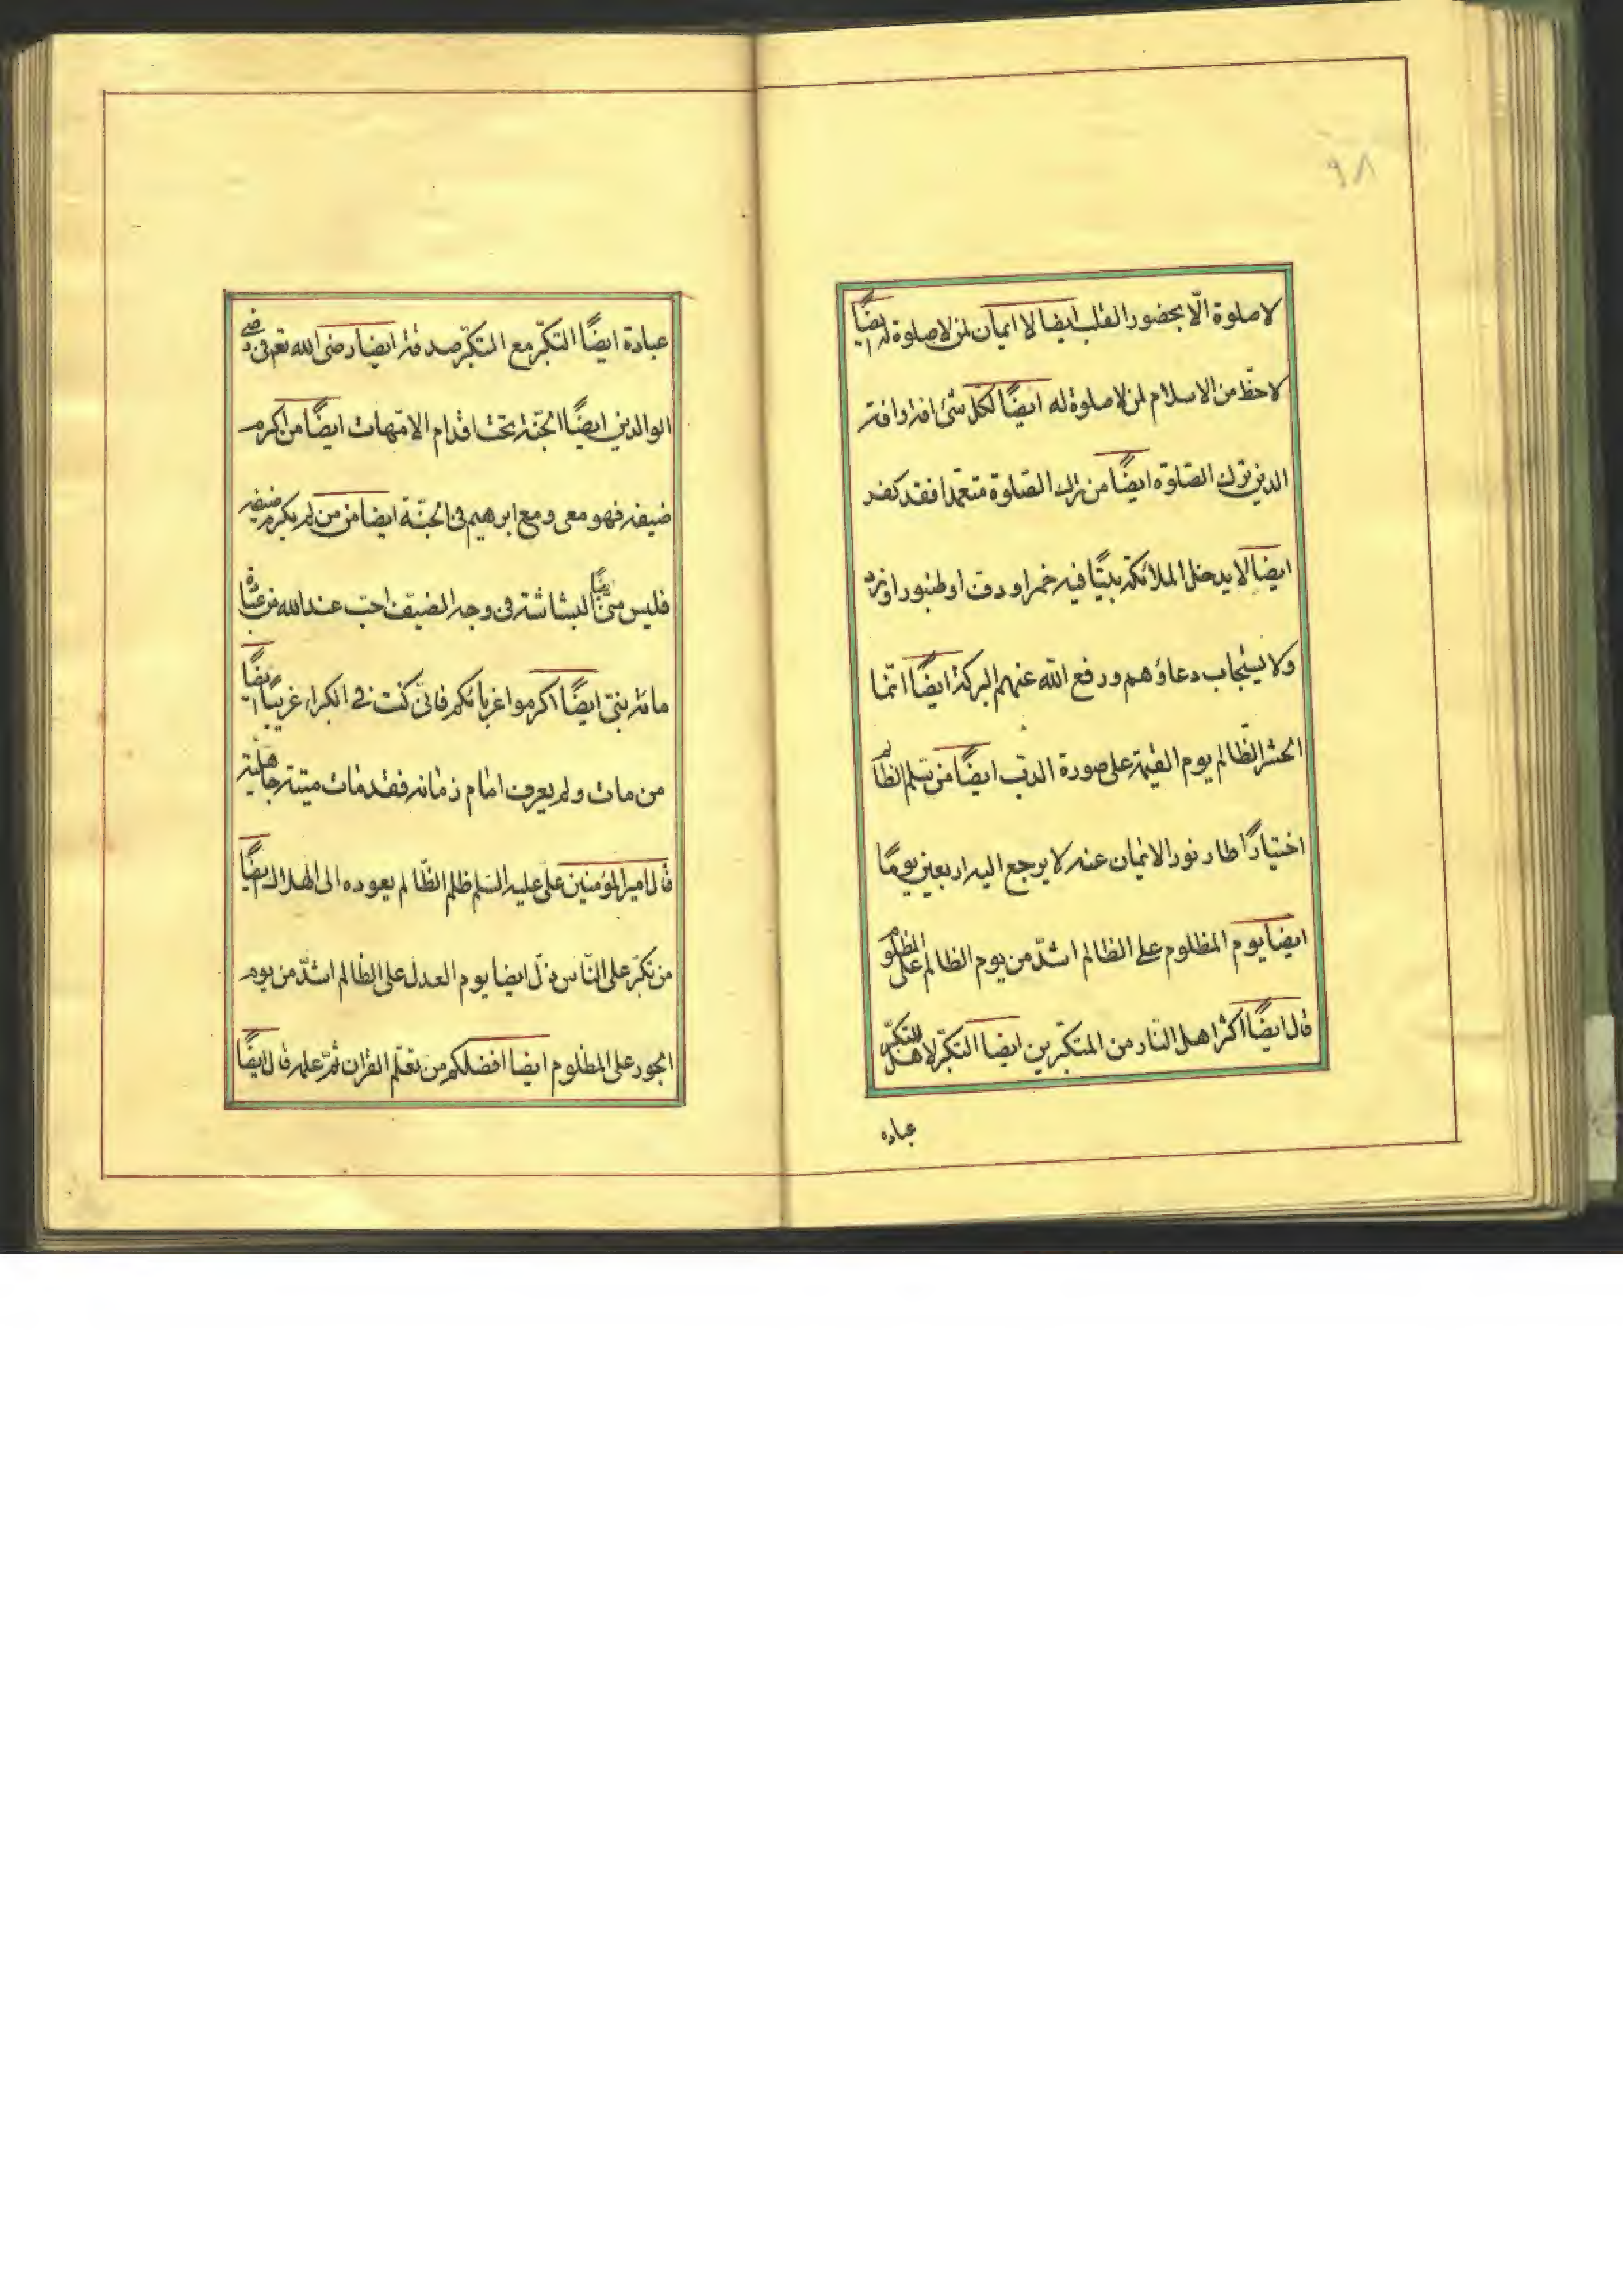 ٩٨
لا صلوة الّا بحضور القلب ايضا لا ايمان لمن لا صلوة له ايضًا
لا حظّ من الاسلام لمن لا صلوة له ايضًا لكلّ شئ افة وافة
الدين ترك الصّلوة ايضًا من ترك الصّلوة متعمدا فقد كفر
ايضا لا يدخل الملائكة بيتًا فيه خمر او دف او طنبور او نرد
ولا يستجاب دعاؤهم ورفع الله عنهم البركة ايضًا انّما
الحشر الظّالم يوم القيمة على صورة الدبّ ايضًا من الظالم
اختيارًا طار نور الايمان عنه لا يرجع اليه اربعين يومًا
ايضا يوم المظلوم على الظالم اشدّ من يوم الظالم على المظلوم
قال ايضًا اكثر اهل النّار من المتكبّرين ايضا التكبّر لاهل التكبّر
عباده
عبادة ايضًا التكبّر مع المتكبّر صدقة ايضا رضى الله تعم فى رضى
الوالدين ايضًا الجنّة تحت اقدام الامّهات ايضًا من اكرم
ضيفه فهو معى ومع ابرهيم فى الجنّة ايضا من من لم يكرم ضيفه
فليس منّى ايضًا البشاشة فى وجه الضيف احبّ عند الله من
مائة بنىّ ايضًا اكرموا غربائكم فانّى كنت فى الكراء غريبًا ايضًا
من مات ولم يعرف امام زمانه فقد مات ميتة جاهلية
قال امير المؤمنين على عليه السّلم ظلم الظّالم يعوده الى الهلاك ايضًا
من تكبّر على النّاس ذلّ ايضا يوم العدل على الظالم اشدّ من يوم
الجور على المظلوم ايضا افضلكم من تعلّم القران ثمّ علمه قال ايضًا